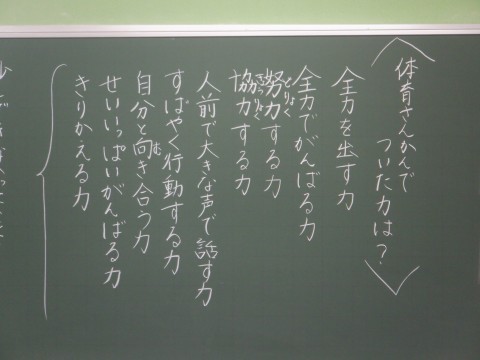 体育さんかんで
ついた力は?
全力を出す力
全力でがんばる力
努力する力
どりょく
協力する力
きょうりょく
人前で大きな声で話す力
すばやく行動する力
自分と向き合う力
む
せいいっぱいがんばる力
きりかえる力